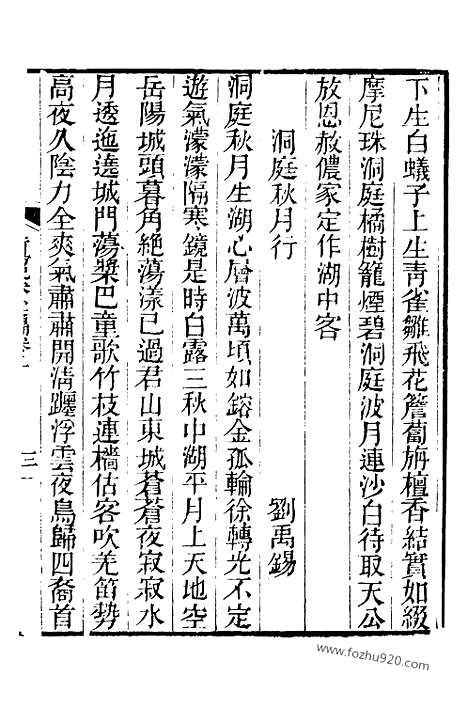 下生白蟻子上生靑雀雛飛花簷蔔旃檀香結實如綴
摩尼珠洞庭橘樹籠煙碧洞庭波月連沙白待取天公
放恩赦儂家定作湖中客
洞庭秋月行
劉禹錫
洞庭秋月生湖心層波萬頃如鎔金孤輪徐轉光不定
遊氣濛濛隔寒鏡是時白露三秋中湖平月上天地空
岳陽城頭暮角絕蕩漾已過君山東城蒼蒼夜寂寂水
月透迤遶城門蕩槳巴童歌竹枝連檣估客吹羌笛勢
高夜久陰力全爽氣肅肅開淸躔浮雲夜鳥歸四裔首
三
www.fozhu920.com